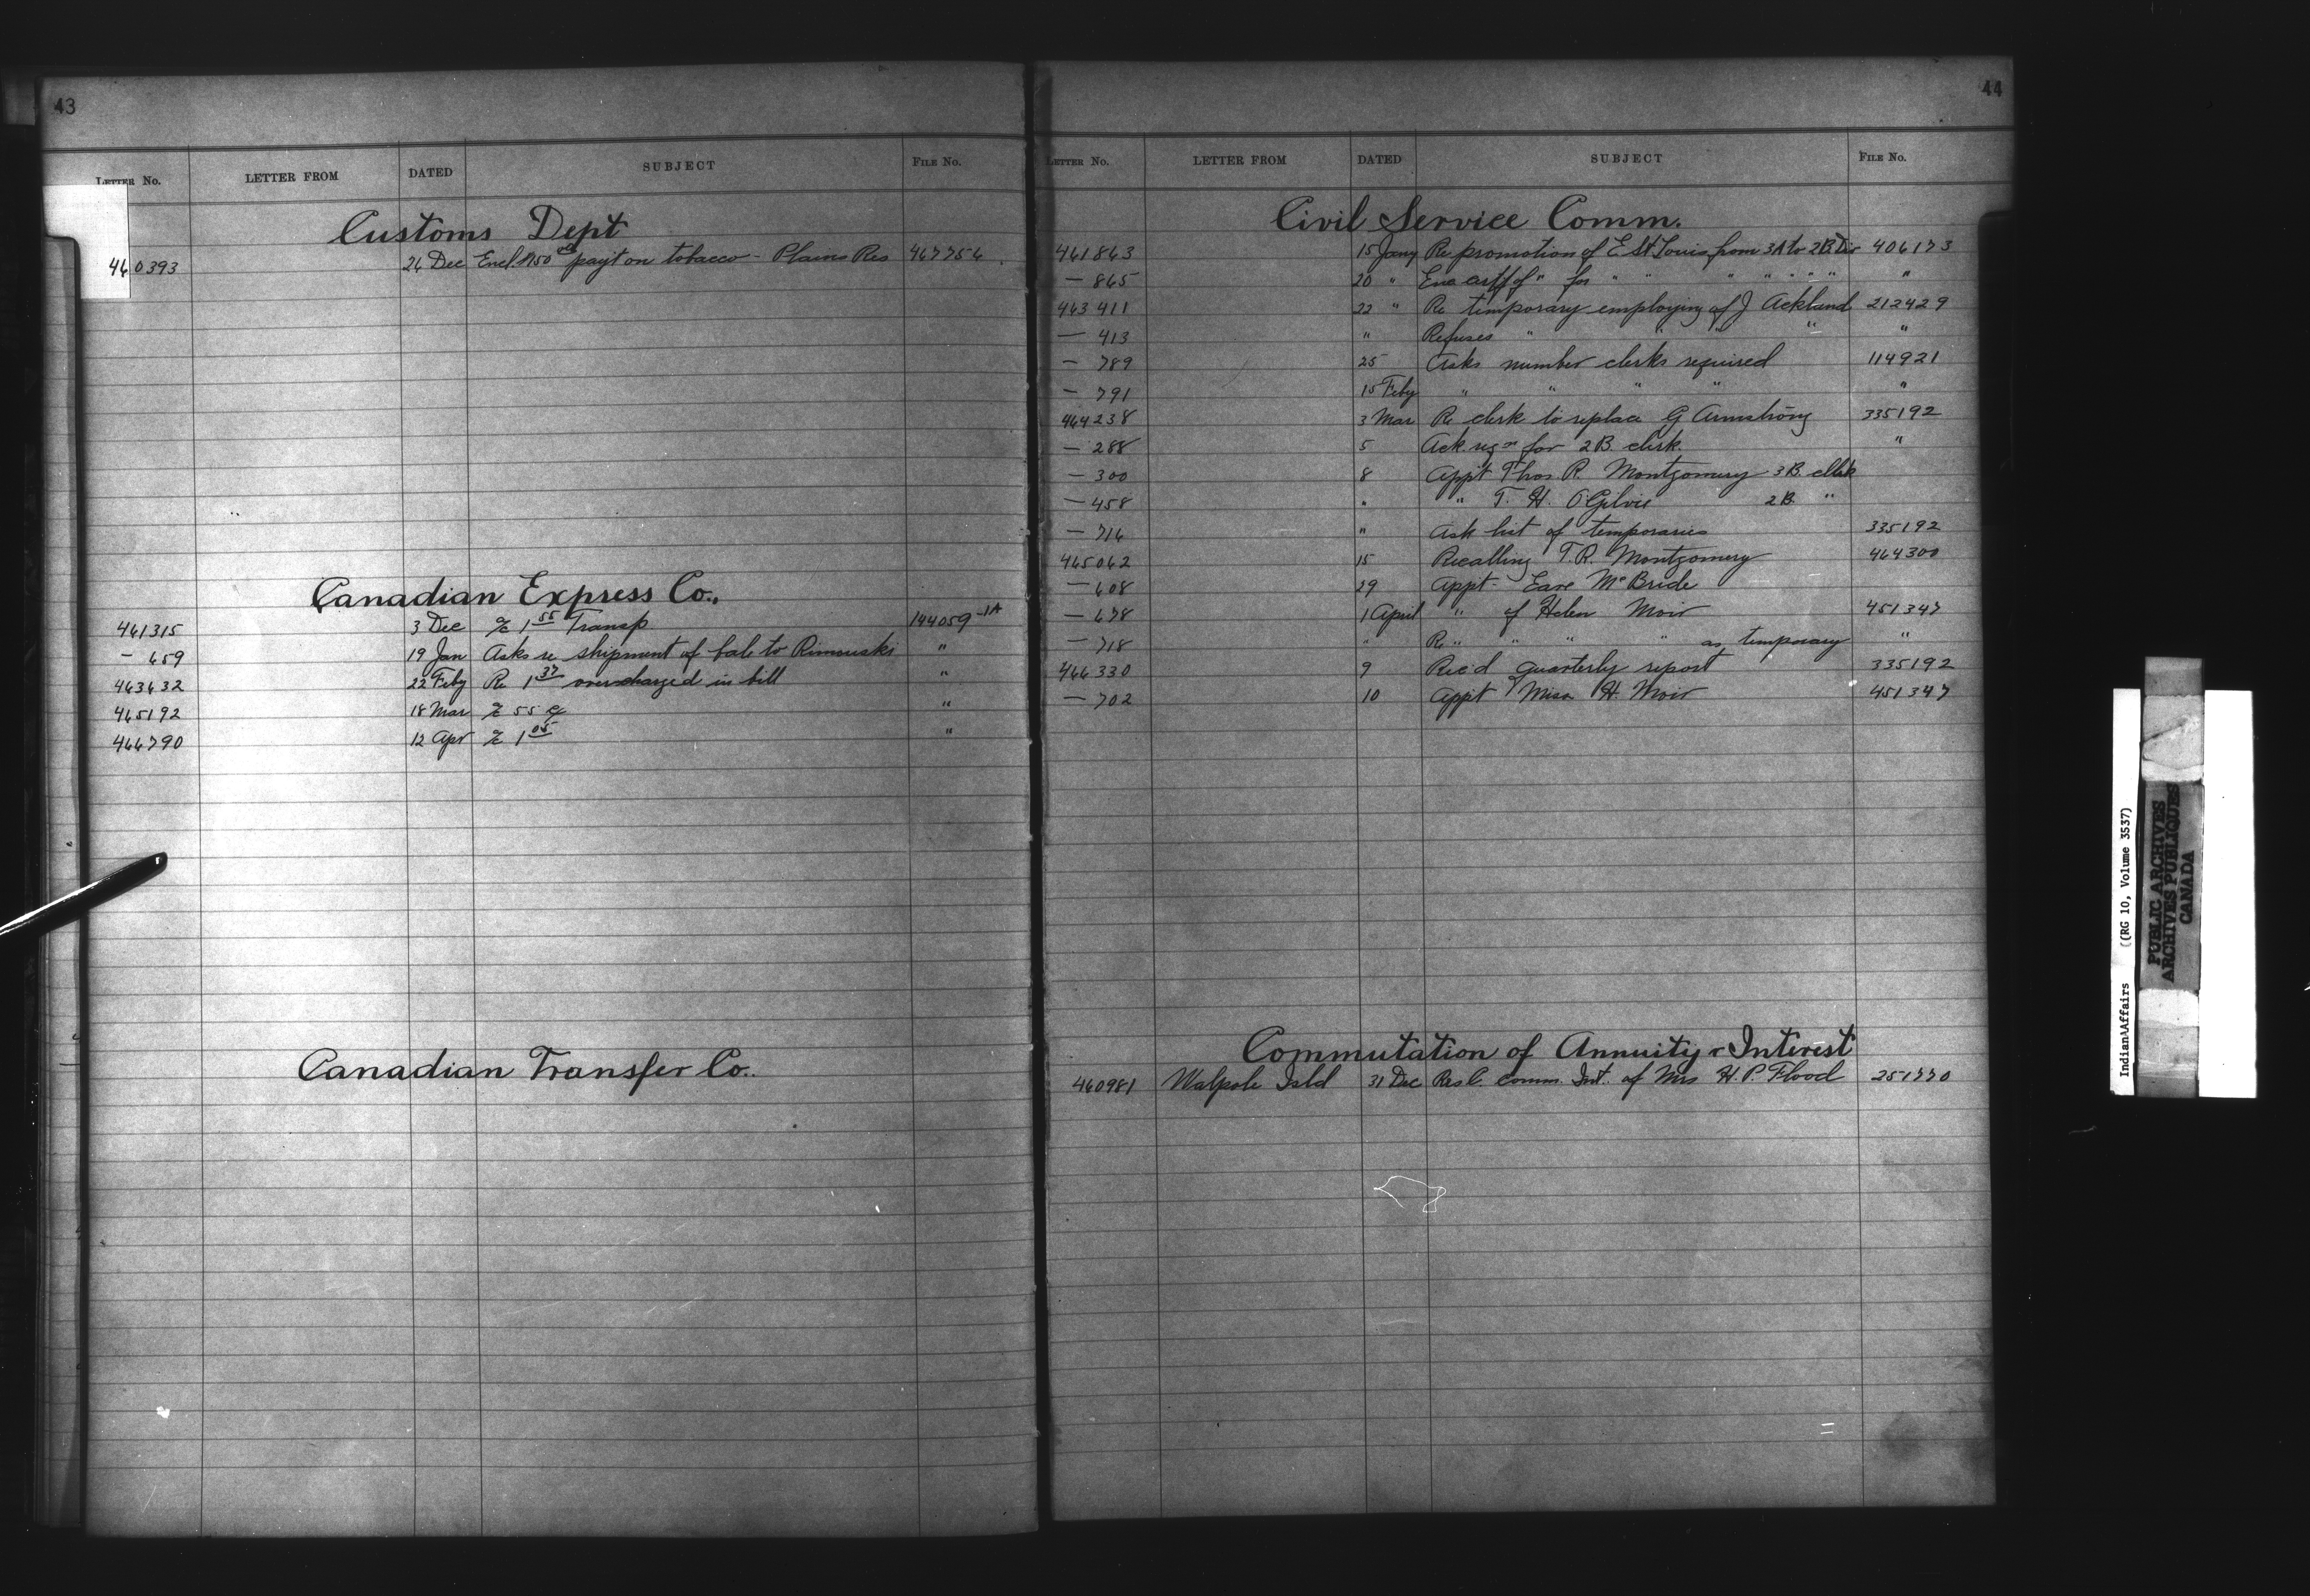 43
LETTER No. LETTER FROM DATED SUBJECT FILE No.
Customs Dept
460393 24 Dec Encl. payt on tobacco - Plains Res 467754
Canadian Express Co.,
461315 3 Dec 1 55 Transp 144059-1A
- 659 19 Jan Asks re shipment of bale to Rimouski "
463632 22 Feby Re 1 37 overcharged in bill "
465192 18 Mar 55 "
466790 12 Apr 1 05 "
Canadian Transfer Co..
44
LETTER No. LETTER FROM DATED SUBJECT FILE No.
Civil Service Comm.
461863 15 Jany Re promotion of E St Louis from 3A to 2B Div 406173
- 865 20 " " for " " " " " " " "
463411 22 " Re temporary employing of J Ackland 212429
- 413 " Refuses " " " " "
- 789 25 Asks number clerks required 114921
- 791 15 Feby " " " " "
464238 3 Mar Re clerk to replace G Armstrong 335192
- 288 5 Ack. reqn for 2B. clerk "
- 300 8 Appt Thos R. Montgomery 3B. clerk
- 458 " " T. H. O'Gilvie 2B "
- 716 " Ask list of temporaries 335192
465062 15 Recalling T.R. Montgomery 464300
- 608 29 Appt- McBride
- 678 1 April " of Helen Moir 451347
- 718 " Re " " " " as temporary "
466330 9 Rec'd quarterly report 335192
- 702 10 Appt Miss H. Moir 451347
Commutation of Annuity & Interest
460981 Walpole Isld 31 Dec Res C. comm. Int. of Mrs H. P. Flood 251770
Indian Affairs (RG 10, Volume 3537)
PUBLIC ARCHIVES
ARCHIVES PUBLIQUES
CANADA